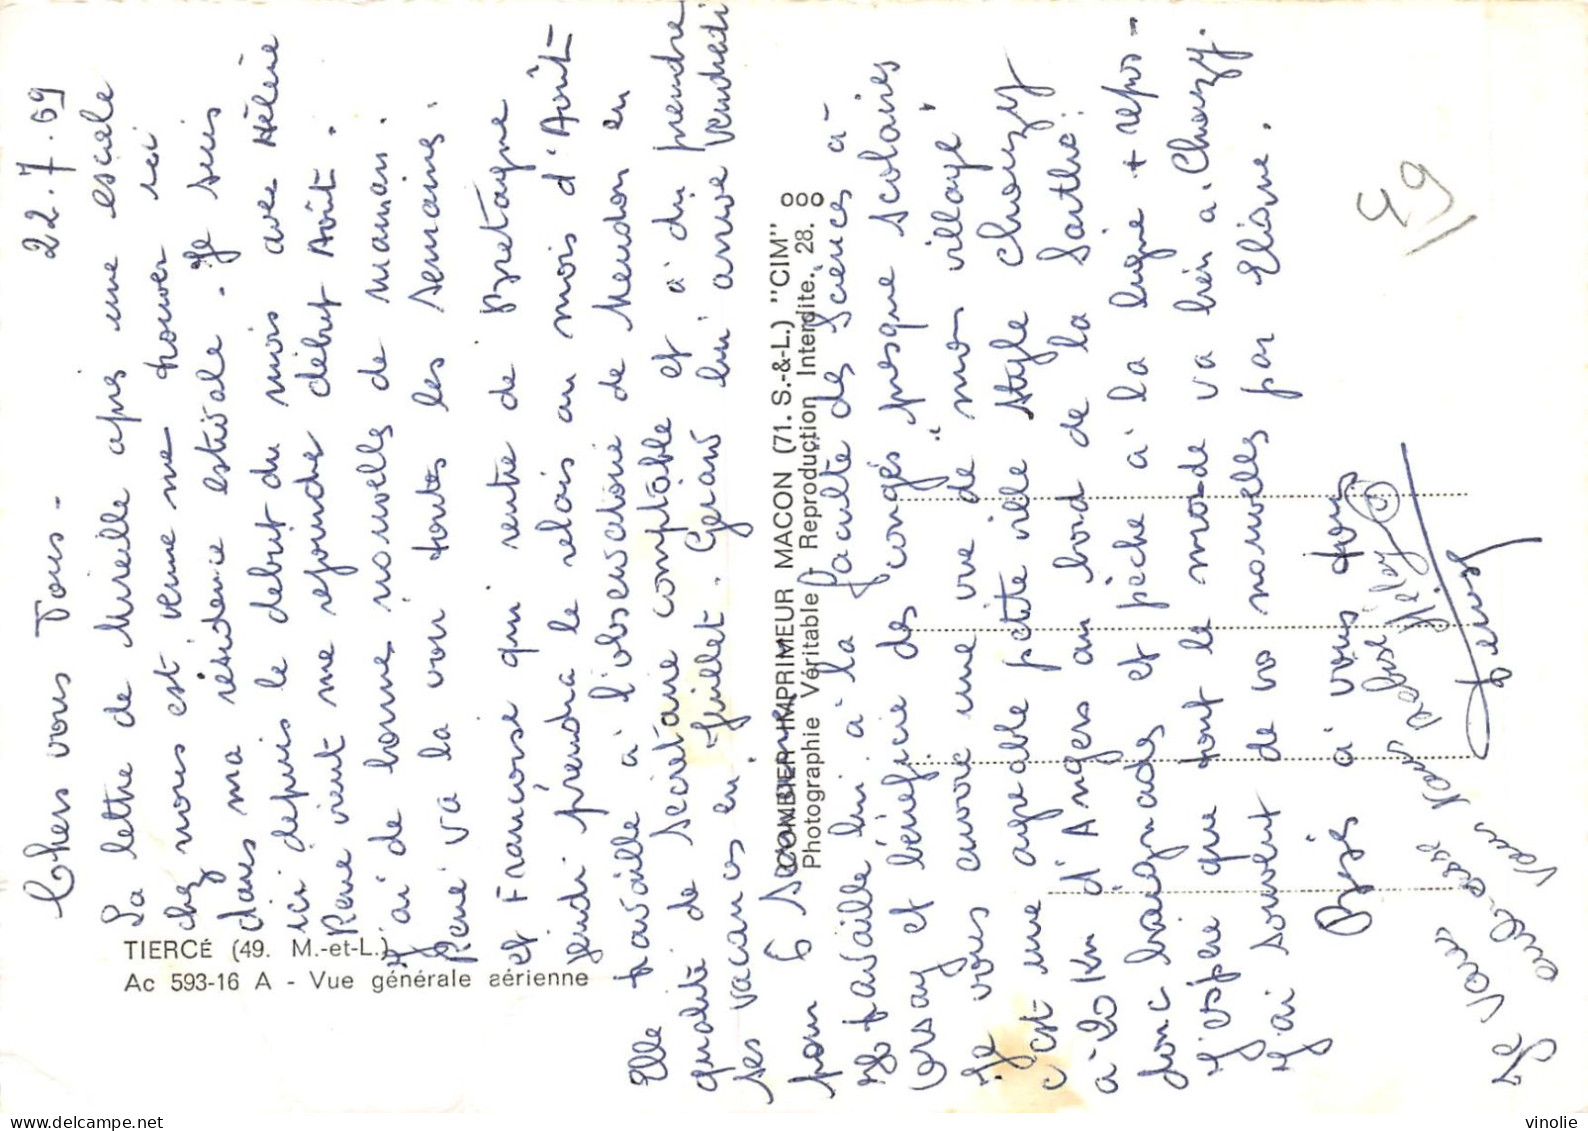 22.7.69
Chers vous Tous -
La lettre de Mireille après une escale
chez nous est venue me trouver ici
dans ma résidence estivale - Je suis
ici depuis le début du mois avec Hélène
René vient me rejoindre début Août.
J'ai de bonnes nouvelles de maman.
René va la voir toutes les semaines.
et Françoise qui rentre de Bretagne
jeudi prendra le relais au mois d'Août -
Elle travaille à l'observatoire de Meudon en
qualité de secrétaire comptable et a dû prendre
ses vacances en Juillet. Gérard lui arrive vendredi
pour 6 Semaines
travaille lui à la faculté des Sciences à
Orsay et bénéficie des "congés presque scolaires"
Je vous envoie une vue de mon "village"
c'est une agréable petite ville style Chouzy
à 20 Km d'Angers au bord de la Sarthe.
donc baignades et pêche à la ligne + repos -
J'espère que tout le monde va bien à Chouzy.
J'ai souvent de vos nouvelles par Éliane.
Bises à vous tous
Je vous embrasse
TIERCÉ (49. M.-et-L.)
Ac 593-16 A - Vue générale aérienne
COMBIER IMPRIMEUR MACON (71. S.-&-L.) "CIM"
Photographie Véritable - Reproduction Interdite. 28.
49
delcampe.net
vinolie